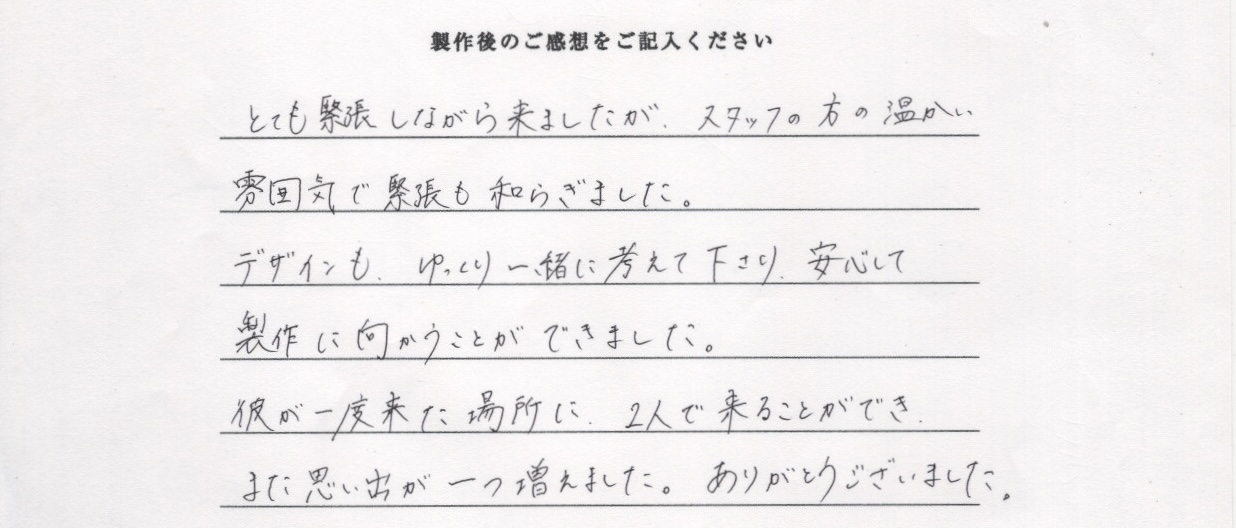 製作後のご感想をご記入ください
とても緊張しながら来ましたが、スタッフの方の温かい
雰囲気で緊張も和らぎました。
デザインも、ゆっくり一緒に考えて下さり、安心して
製作に向かうことができました。
彼が一度来た場所に、2人で来ることができ、
また思い出が一つ増えました。ありがとうございました。